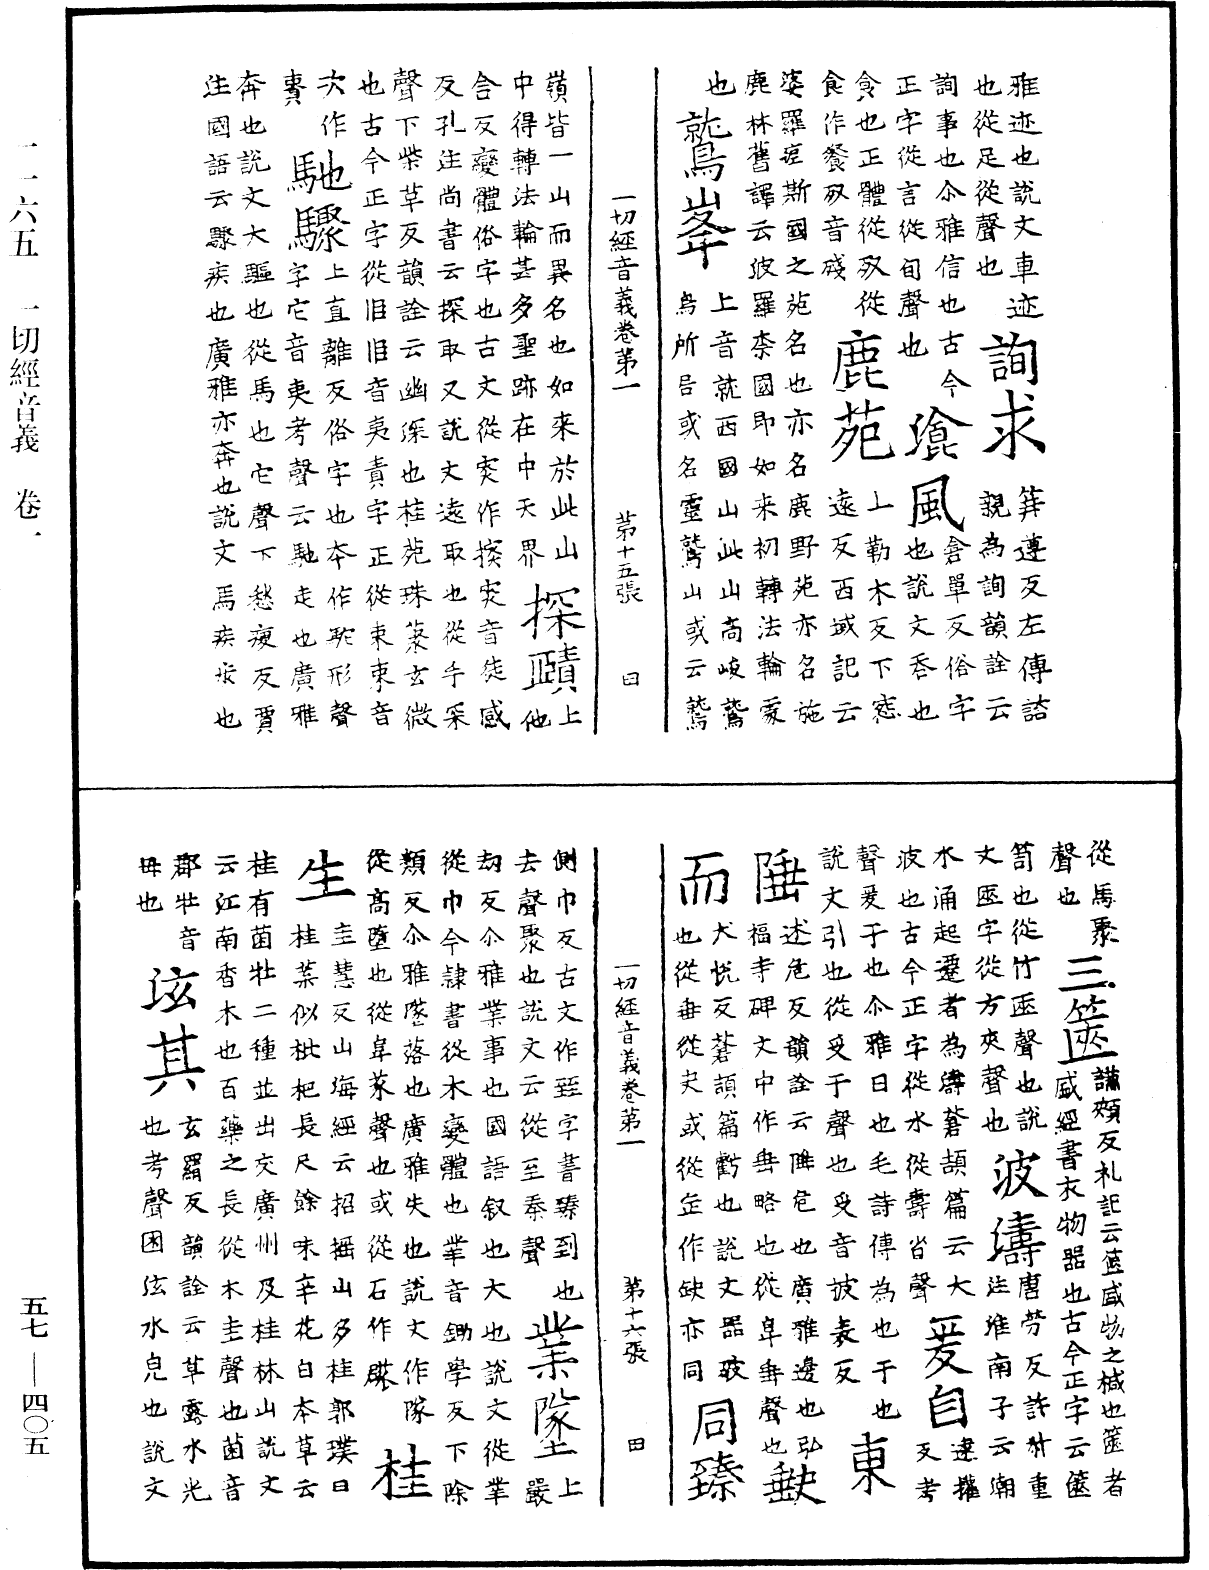 一一六五 一切經音義 卷一
五七—四〇五
雅迹也說文車迹
也從足從聲也
詢求
筭遵反左傳諮
親為詢韻詮云
詢事也尒雅信也古今
正字從言從旬聲也
飡風
倉單反俗字
也說文吞也
食也正體從㕡從
食作餐㕡音殘
鹿苑
上勒木反下𢙣
遠反西域記云
婆羅痆斯國之苑名也亦名鹿野苑亦名施
鹿林舊譯云波羅柰國即如来初轉法輪處
也
鷲峯
上音就西國山此山高峻鷲
鳥所居或名靈鷲山或云鷲
一切經音義卷第一 第十五張 曰
嶺皆一山而異名也如来於此山
中得轉法輪甚多聖跡在中天界
探賾
上
他
合反變體俗字也古文從穾作㨒穾音徒感
反孔注尚書云探取又說文遠取也從手罙
聲下柴草反韻詮云幽深也桂苑珠藂玄微
也古今正字從𦣞𦣞音夷責字正從朿朿音
次作
𧵩
馳驟
上直離反俗字也本作駞形聲
字它音夷考聲云馳走也廣雅
奔也說文大驅也從馬也它聲下愁瘦反賈
注國語云驟疾也廣雅亦奔也說文馬疾步也
從馬聚
聲也
三篋
謙頰反礼記云篋盛物之椷也篋者
盛經書衣物器也古今正字云篋
笥也從竹匧聲也說
文匧字從方夾聲也
波濤
唐勞反許叔重
注淮南子云潮
水涌起還者為濤蒼頡篇云大
波也古今正字從水從壽省聲
爰自
遠權
反考
聲爰于也尒雅曰也毛詩傳為也于也
說文引也從𠬪于聲也𠬪音披表反
東
陲
述危反韻詮云陲危也廣雅邊也弘
福寺碑文中作垂略也從阜垂聲也
䖙
而
犬悅反蒼頡篇虧也說文器破
也從垂從夬或從缶作缺亦同
同臻
側巾反古文作臸字書臻到也
去聲聚也說文云從至秦聲
業墜
上
嚴
刧反尒雅業事也國語叙也大也說文從丵
從巾今隸書從木變體也丵音鋤學反下除
類反尒雅墜落也廣雅失也說文作隊
從高墮也從阜㒸聲也或從石作䃍
桂
生
圭慧反山海經云招搖山多桂郭璞曰
桂葉似枇杷長尺餘味辛花白本草云
桂有菌牡二種並出交廣州及桂林山說文
云江南香木也百藥之長從木圭聲也菌音
郡牡音
母也
泫其
玄羂反韻詮云草露水光
也考聲困泫水皃也說文
一切經音義卷第一 第十六張 田